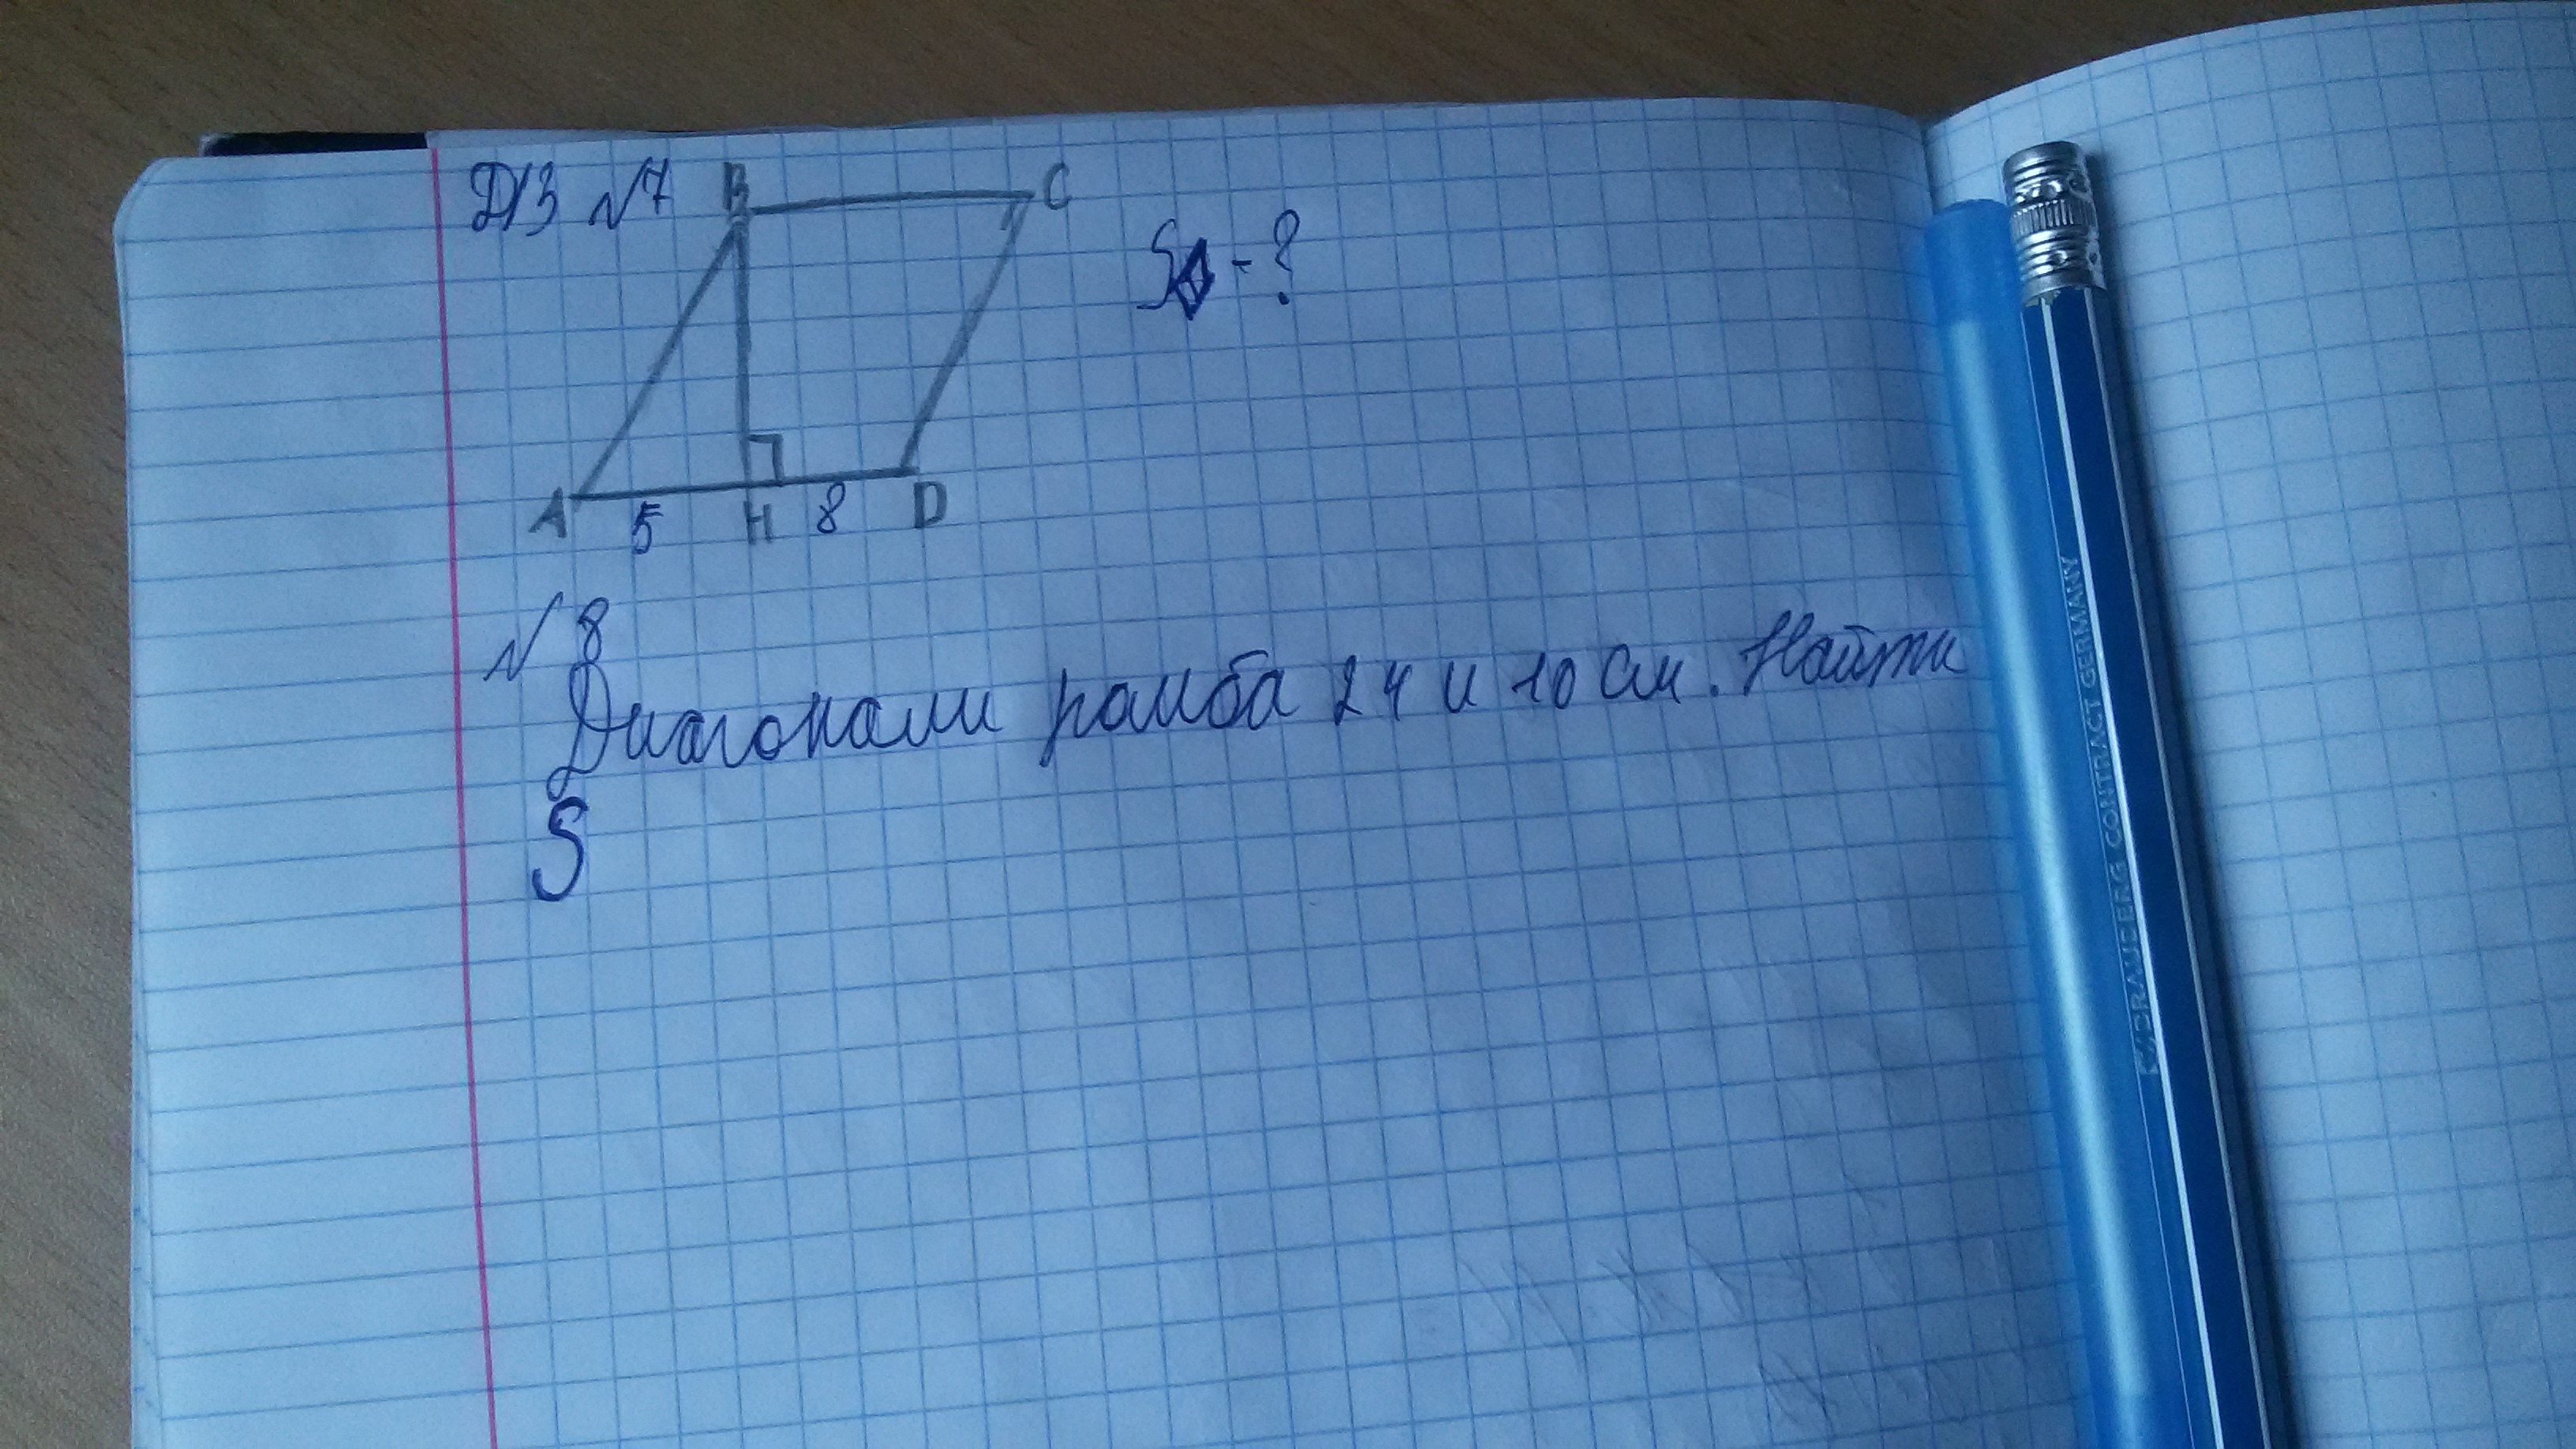 Д/З №7
B
C
S◊ - ?
A
5
H
8
D
№8
Диагонали ромба 24 и 10 см. Найти
S
BRAUBERG CONTRACT GERMANY